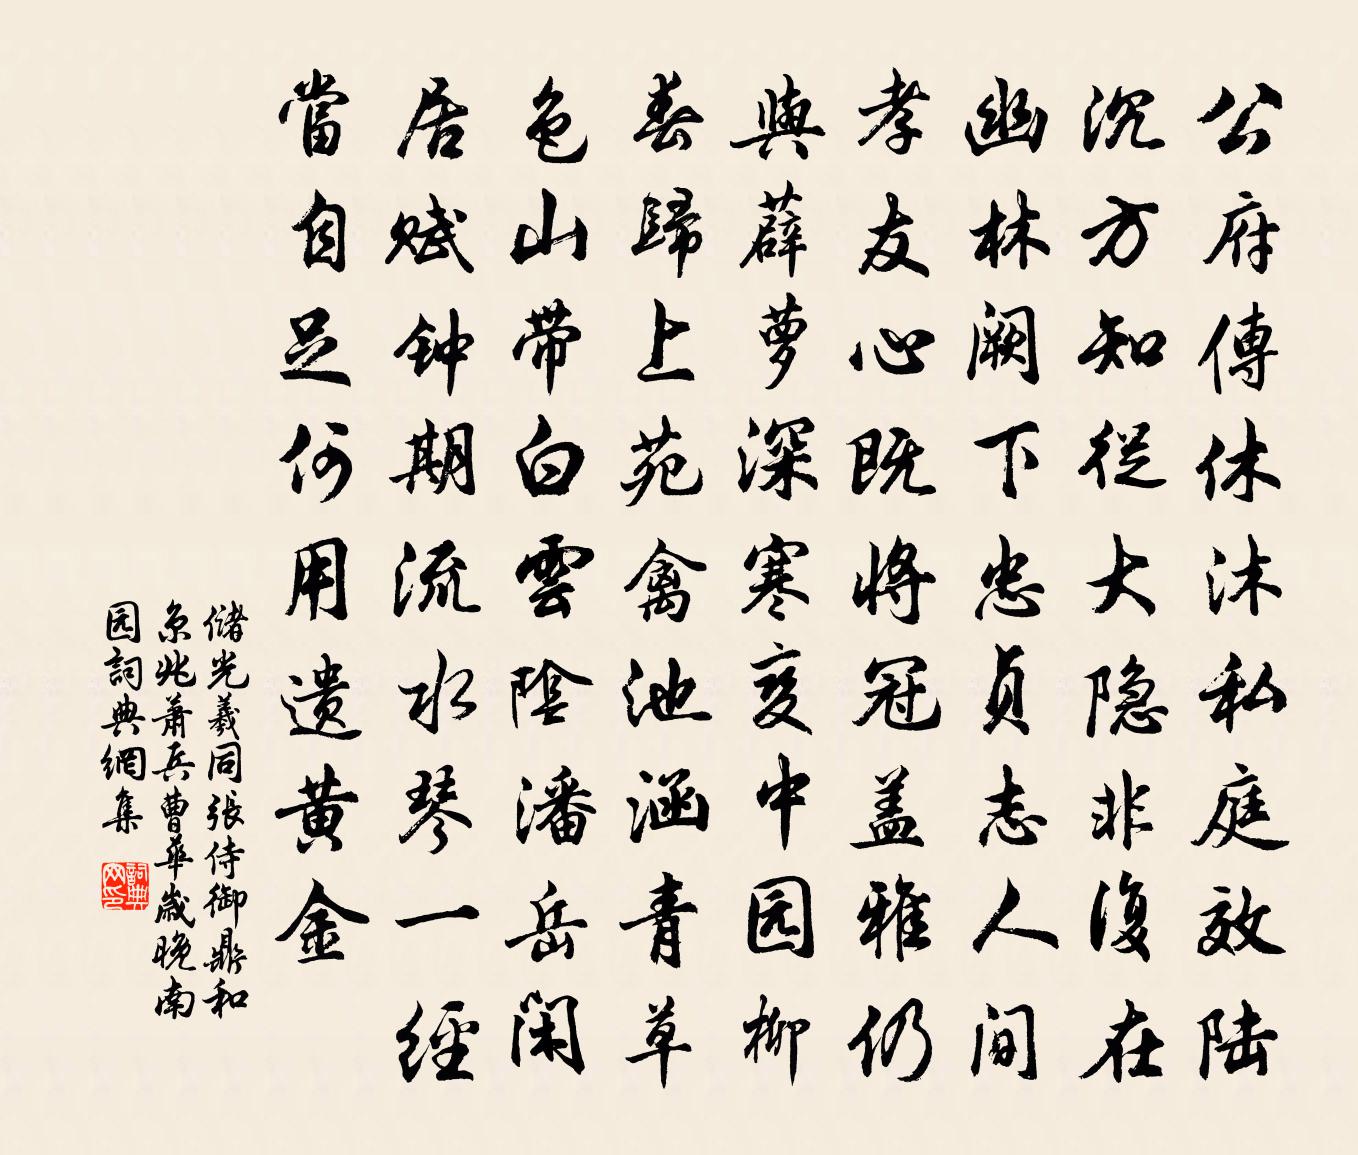 公府傳休沐私庭效陆
沉方知従大隐非復在
幽林阙下忠贞志人间
孝友心既将冠盖雅仍
與薜萝深寒变中园柳
春歸上苑禽池涵青草
色山带白雲陰潘岳闲
居赋钟期流水琴一经
當自足何用遗黄金
储光羲同張侍御鼎和
京兆萧兵曹華歲晚南
园詞典網集
詞典网印